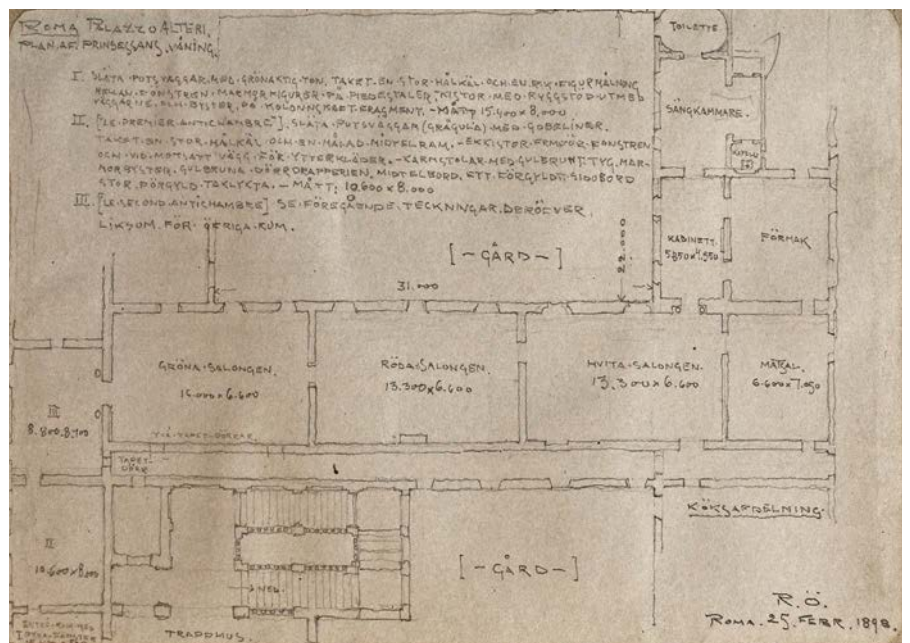 ROMA PALAZZO ALTIERI.
PLAN AF PRINSESSANS VÅNING.
I. SLÄTA PUTSVÄGGAR, GRÖNAKTIG TON, TAKET EN STOR HÅLKÄL OCH EN FIGURMÅLNING
MARMORFIGURER PÅ PIEDESTALER, KISTOR MED RYGGSTÖD UTMED
VÄGGARNE OCH BYSTER PÅ KOLONNSKAFT FRAGMENT. - MÅTT 15.400 x 8.000
II. [LE PREMIER ANTICHAMBRE]. SLÄTA PUTSVÄGGAR (GRÅGULA) MED GOBELINER.
TAKET EN STOR HÅLKÄL OCH EN MÅLAD MIDTELRAM. - EKKISTOR FRAMFÖR FÖNSTREN
OCH VID MOTSATT VÄGG FÖR YTTERKLÄDER. - KARMSTOLAR MED GULBRUNT TYG, MAR-
MORBYSTER, GULBRUNA DÖRRDRAPPERIER, MIDTELBORD, ETT FÖRGYLDT SIDOBORD
STOR FÖRGYLD TAKLYKTA. - MÅTT: 10.600 x 8.000
III. [LE SECOND ANTICHAMBRE] SE FÖREGÅENDE TECKNINGAR DERÖFVER,
LIKSOM FÖR ÖFRIGA RUM.
TOILETTE
SÄNGKAMMARE.
KAPELL
[-GÅRD-]
22.000
31.000
KABINETT.
5.850 x 4.950
FÖRMAK
GRÖNA SALONGEN.
RÖDA SALONGEN.
13.300 x 6.600
HVITA SALONGEN.
13.300 x 6.600
MATSAL.
III
8.800.8.700
TAPET-
DÖRR
KÖKSAFDELNING.
II
10.600 x 8.000
[-GÅRD-]
TRAPPHUS.
R.Ö.
ROMA. 25. FEBR. 1898.